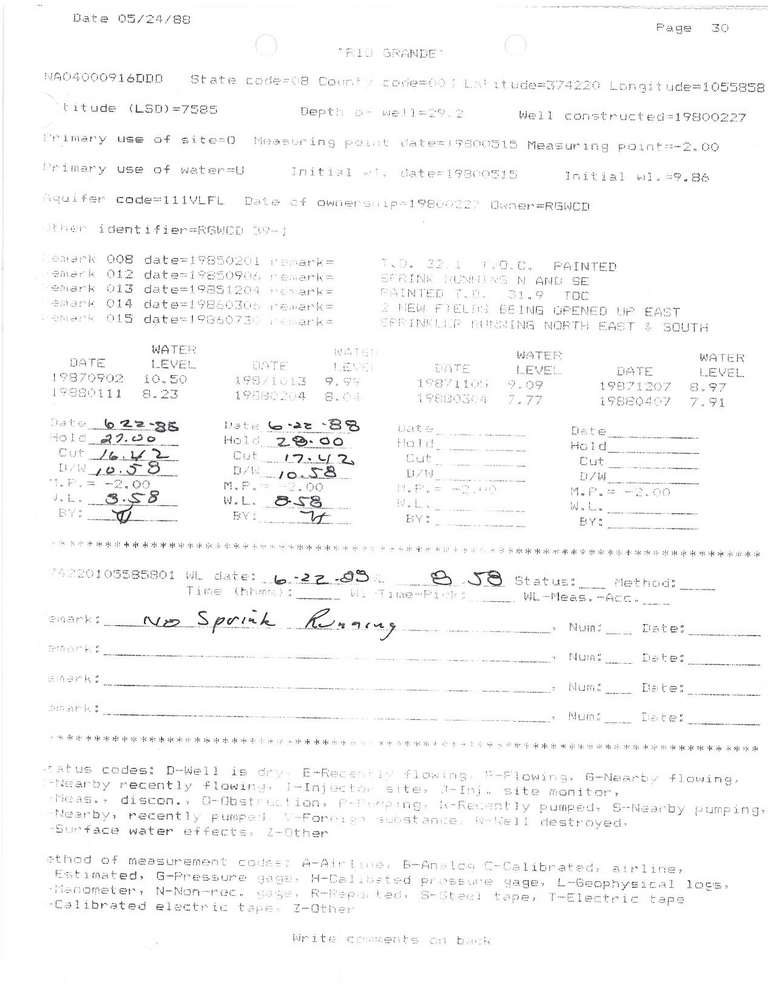 Date 05/24/88
Page 30
"RIO GRANDE"
NA04000916DDD State code=08 County code=003 Latitude=374220 Longitude=1055858
titude (LSD)=7585 Depth of well=29.2 Well constructed=19800227
Primary use of site=O Measuring point date=19800515 Measuring point=-2.00
Primary use of water=U Initial wl. date=19800515 Initial wl.=9.86
Aquifer code=111VLFL Date of ownership=19800227 Owner=RGWCD
Other identifier=RGWCD 39-1
emark 008 date=19850201 remark= T.D. 32.1 T.O.C. PAINTED
emark 012 date=19850906 remark= SPRINK RUNNING N AND SE
emark 013 date=19851204 remark= PAINTED T.D. 31.9 TOC
emark 014 date=19860306 remark= 2 NEW FIELDS BEING OPENED UP EAST
emark 015 date=19860730 remark= SPRINKLER RUNNING NORTH EAST & SOUTH
WATER WATER WATER WATER
DATE LEVEL DATE LEVEL DATE LEVEL DATE LEVEL
19870902 10.50 19871013 9.99 19871105 9.09 19871207 8.97
19880111 8.23 19880204 8.04 19880304 7.77 19880407 7.91
Date 6-22-88 Date 6-22-88 Date Date
Hold 27.00 Hold 28.00 Hold Hold
Cut 16.42 Cut 17.42 Cut Cut
D/W 10.58 D/W 10.58 D/W D/W
M.P.= -2.00 M.P.= -2.00 M.P.= -2.00 M.P.= -2.00
W.L. 8.58 W.L. 8.58 W.L. W.L.
BY: BY: BY: BY:
********************************************************************************
74220105585801 WL date: 6-22-88 WL 8.58 Status: Method:
Time (hhmm): WL-Time-Pick: WL-Meas.-Acc.
emark: No Sprink Running, Num: Date:
emark: , Num: Date:
emark: , Num: Date:
emark: , Num: Date:
********************************************************************************
tatus codes: D-Well is dry, E-Recently flowing, F-Flowing, G-Nearby flowing,
-Nearby recently flowing, I-Injector site, J-Inj. site monitor,
-Meas., discon., O-Obstruction, P-Pumping, R-Recently pumped, S-Nearby pumping,
-Nearby, recently pumped, V-Foreign substance, W-Well destroyed,
-Surface water effects, Z-Other
ethod of measurement codes: A-Airline, B-Analog C-Calibrated, airline,
Estimated, G-Pressure gage, H-Calibrated pressure gage, L-Geophysical logs,
-Manometer, N-Non-rec. gage, R-Reported, S-Steel tape, T-Electric tape
-Calibrated electric tape, Z-Other
Write comments on back